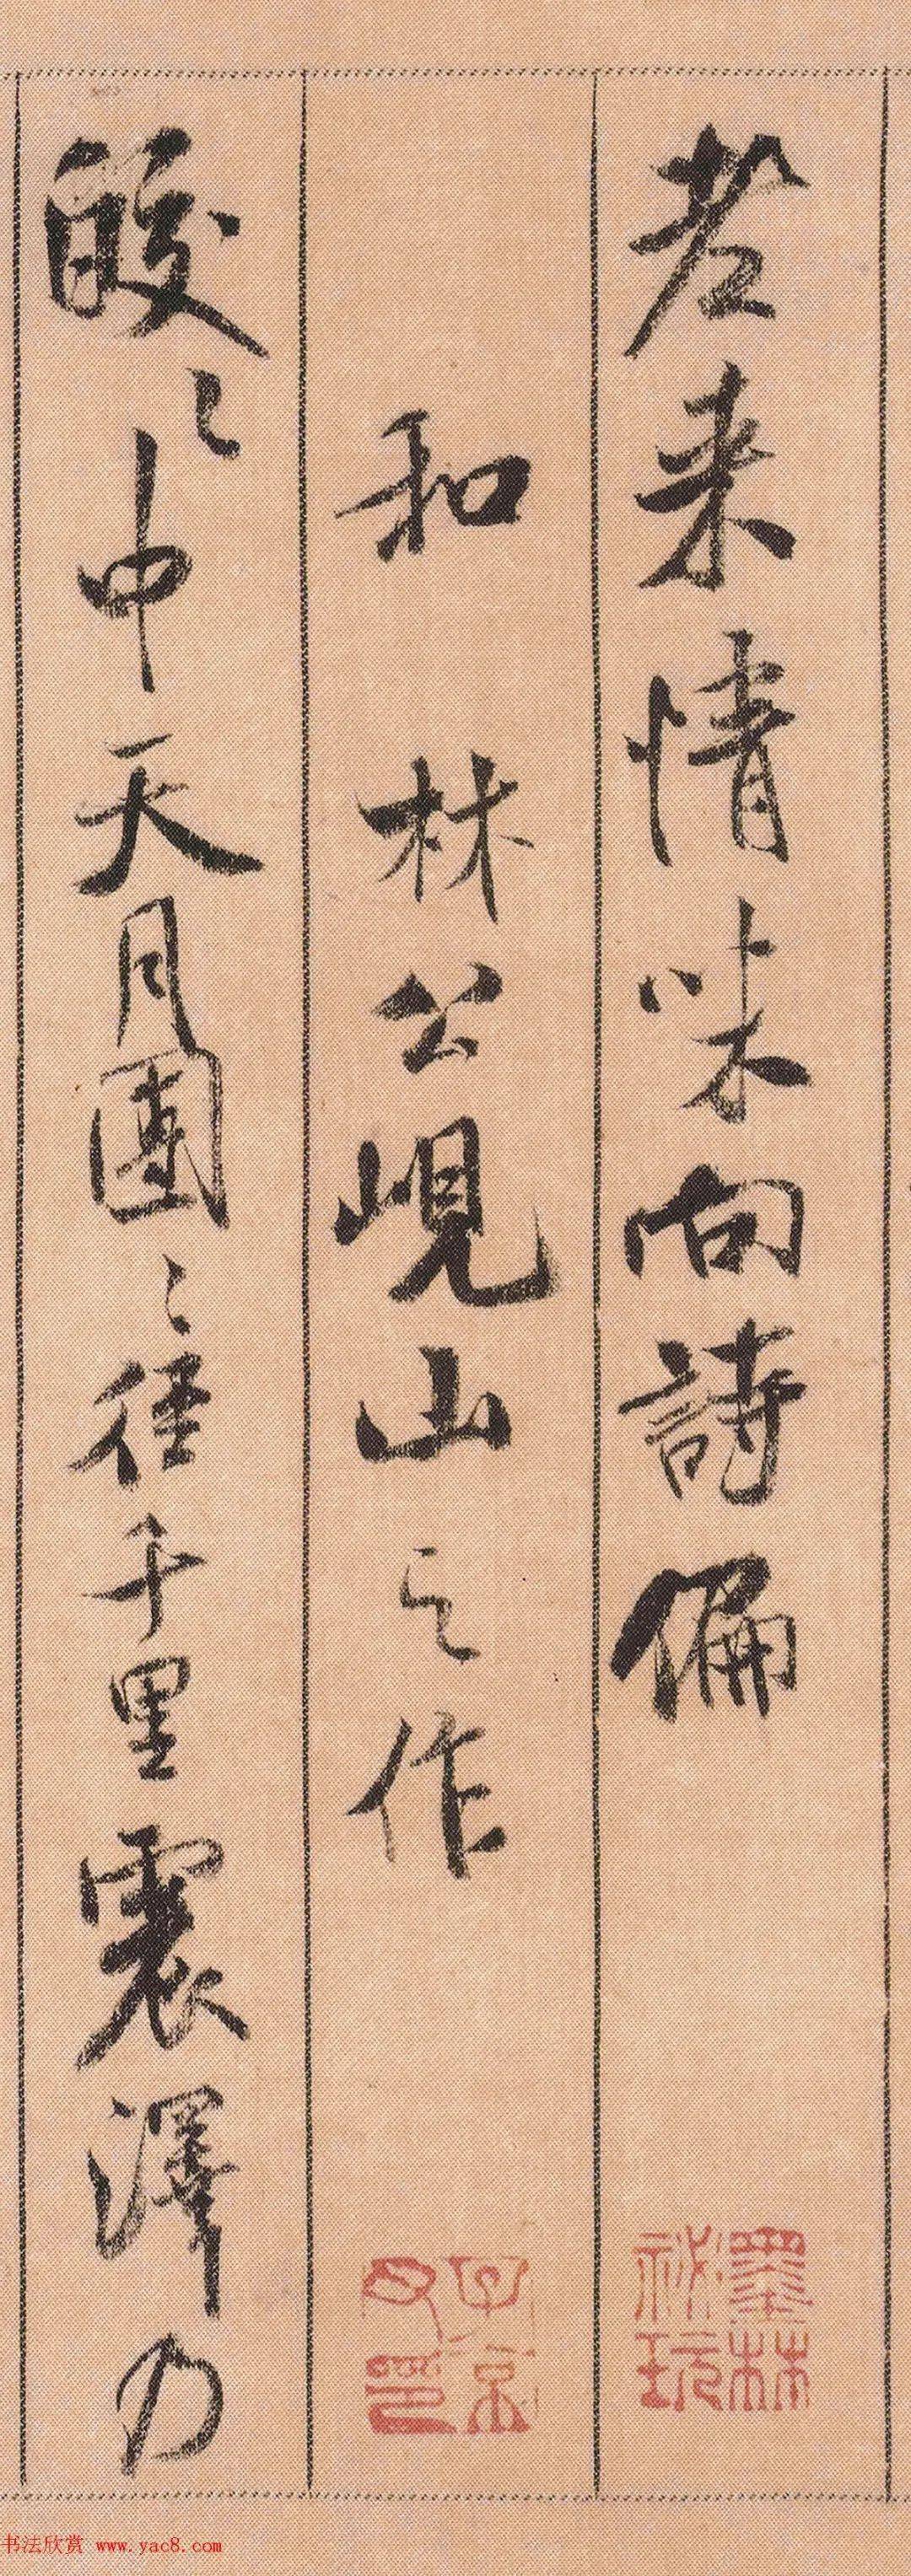 老来情味向詩偏
和林公峴山之作
皎〻中天月團〻径千里震澤乃
墨林秘玩
子京父印
书法欣赏 www.yac8.com